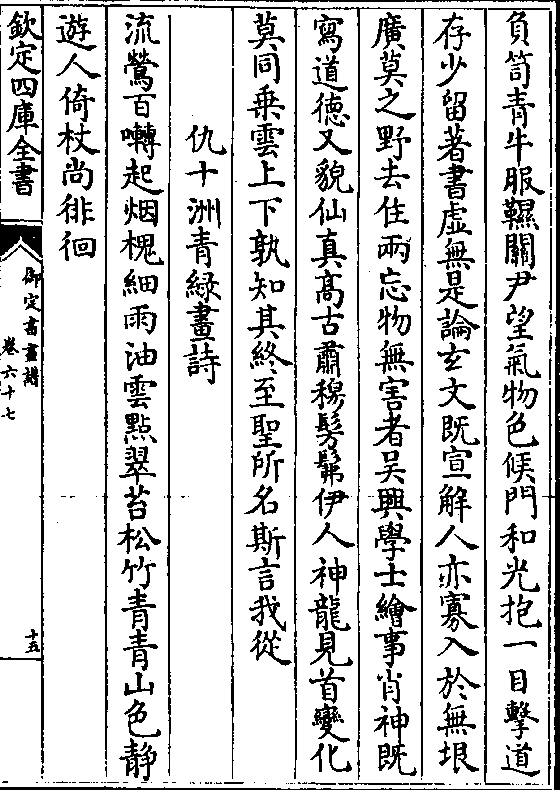 負笥青牛服鞿關尹望氣物色候門和光抱一目擊道
存少留著書虛無是論玄文既宣解人亦寡入於無垠
廣莫之野去住兩忘物無害者吳興學士繪事肖神既
寫道德又貌仙真髙古肅穆髣髴伊人神龍見首變化
莫同乗雲上下孰知其終至聖所名斯言我從
仇十洲青緑畫詩
流鶯百囀起烟槐細雨油雲點翠苔松竹青青山色静
遊人倚杖尚徘徊
欽定四庫全書
御定書畫譜
卷六十七
十五